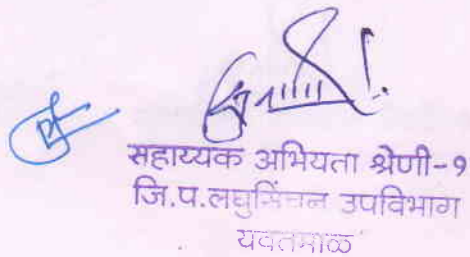 सहाय्यक अभियता श्रेणी-१
जि.प.लघुसिंचन उपविभाग
यवतमाळ